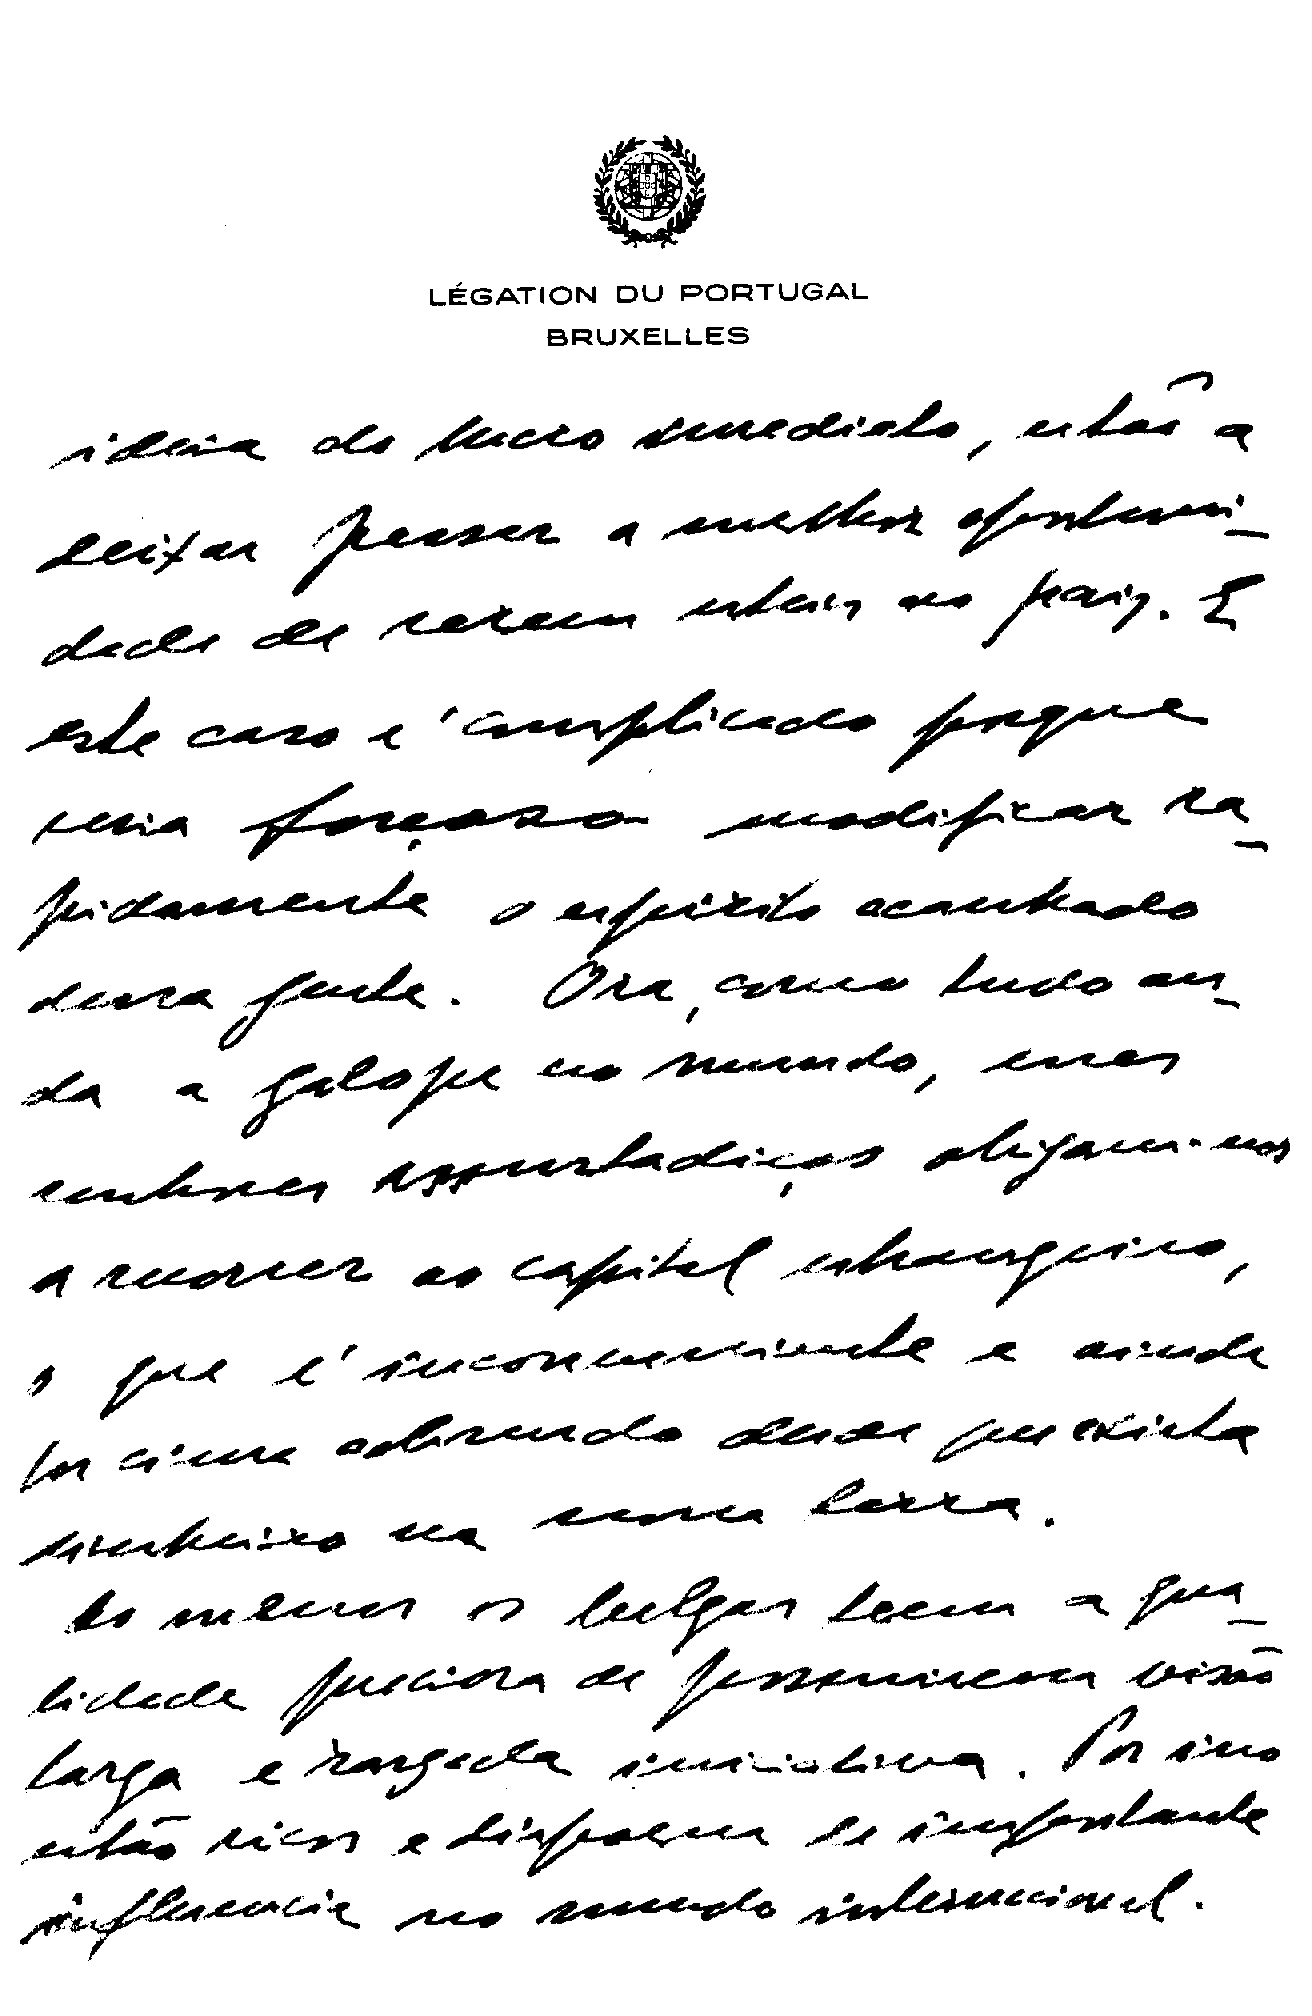 LÉGATION DU PORTUGAL
BRUXELLES
ideia do lucro imediato, estão a
deixar passar a melhor oportuni-
dade de serem uteis ao paiz. E
este caso é complicado porque
seria forçoso modificar ra-
pidamente o espirito acanhado
dessa gente. Ora, como tudo an-
da a galope no mundo, esses
senhores assustadiços obrigam-nos
a recorrer ao capital estrangeiro,
o que é inconveniente e ainda
por cima absurdo desde que exista
dinheiro na nossa terra.
Ao menos os belgas teem a qua-
lidade preciosa de possuirem visão
larga e rasgada iniciativa. Por isso
estão ricos e dispoem de importante
influencia no mundo internacional.